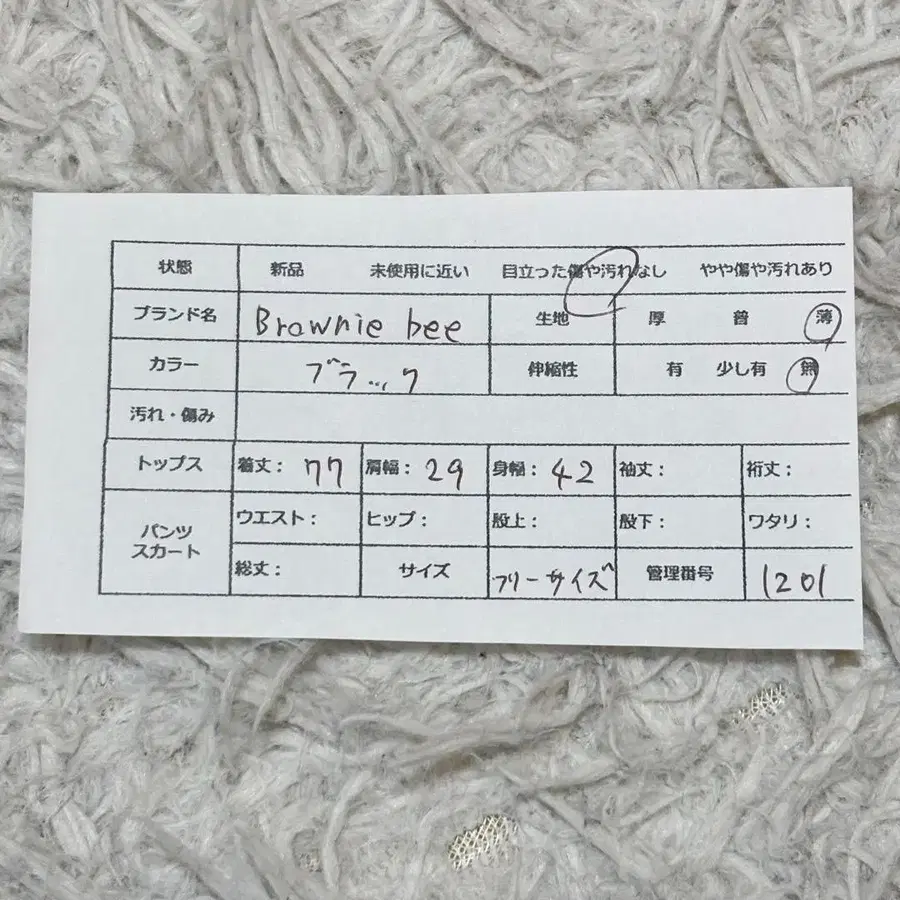 状態 新品 未使用に近い 目立った傷や汚れなし やや傷や汚れあり
ブランド名 Brownie bee 生地 厚 普 薄
カラー ブラック 伸縮性 有 少し有 無
汚れ・傷み
トップス 着丈: 77 肩幅: 29 身幅: 42 袖丈: 裄丈:
パンツ スカート ウエスト: ヒップ: 股上: 股下: ワタリ:
総丈: サイズ フリーサイズ 管理番号 1201